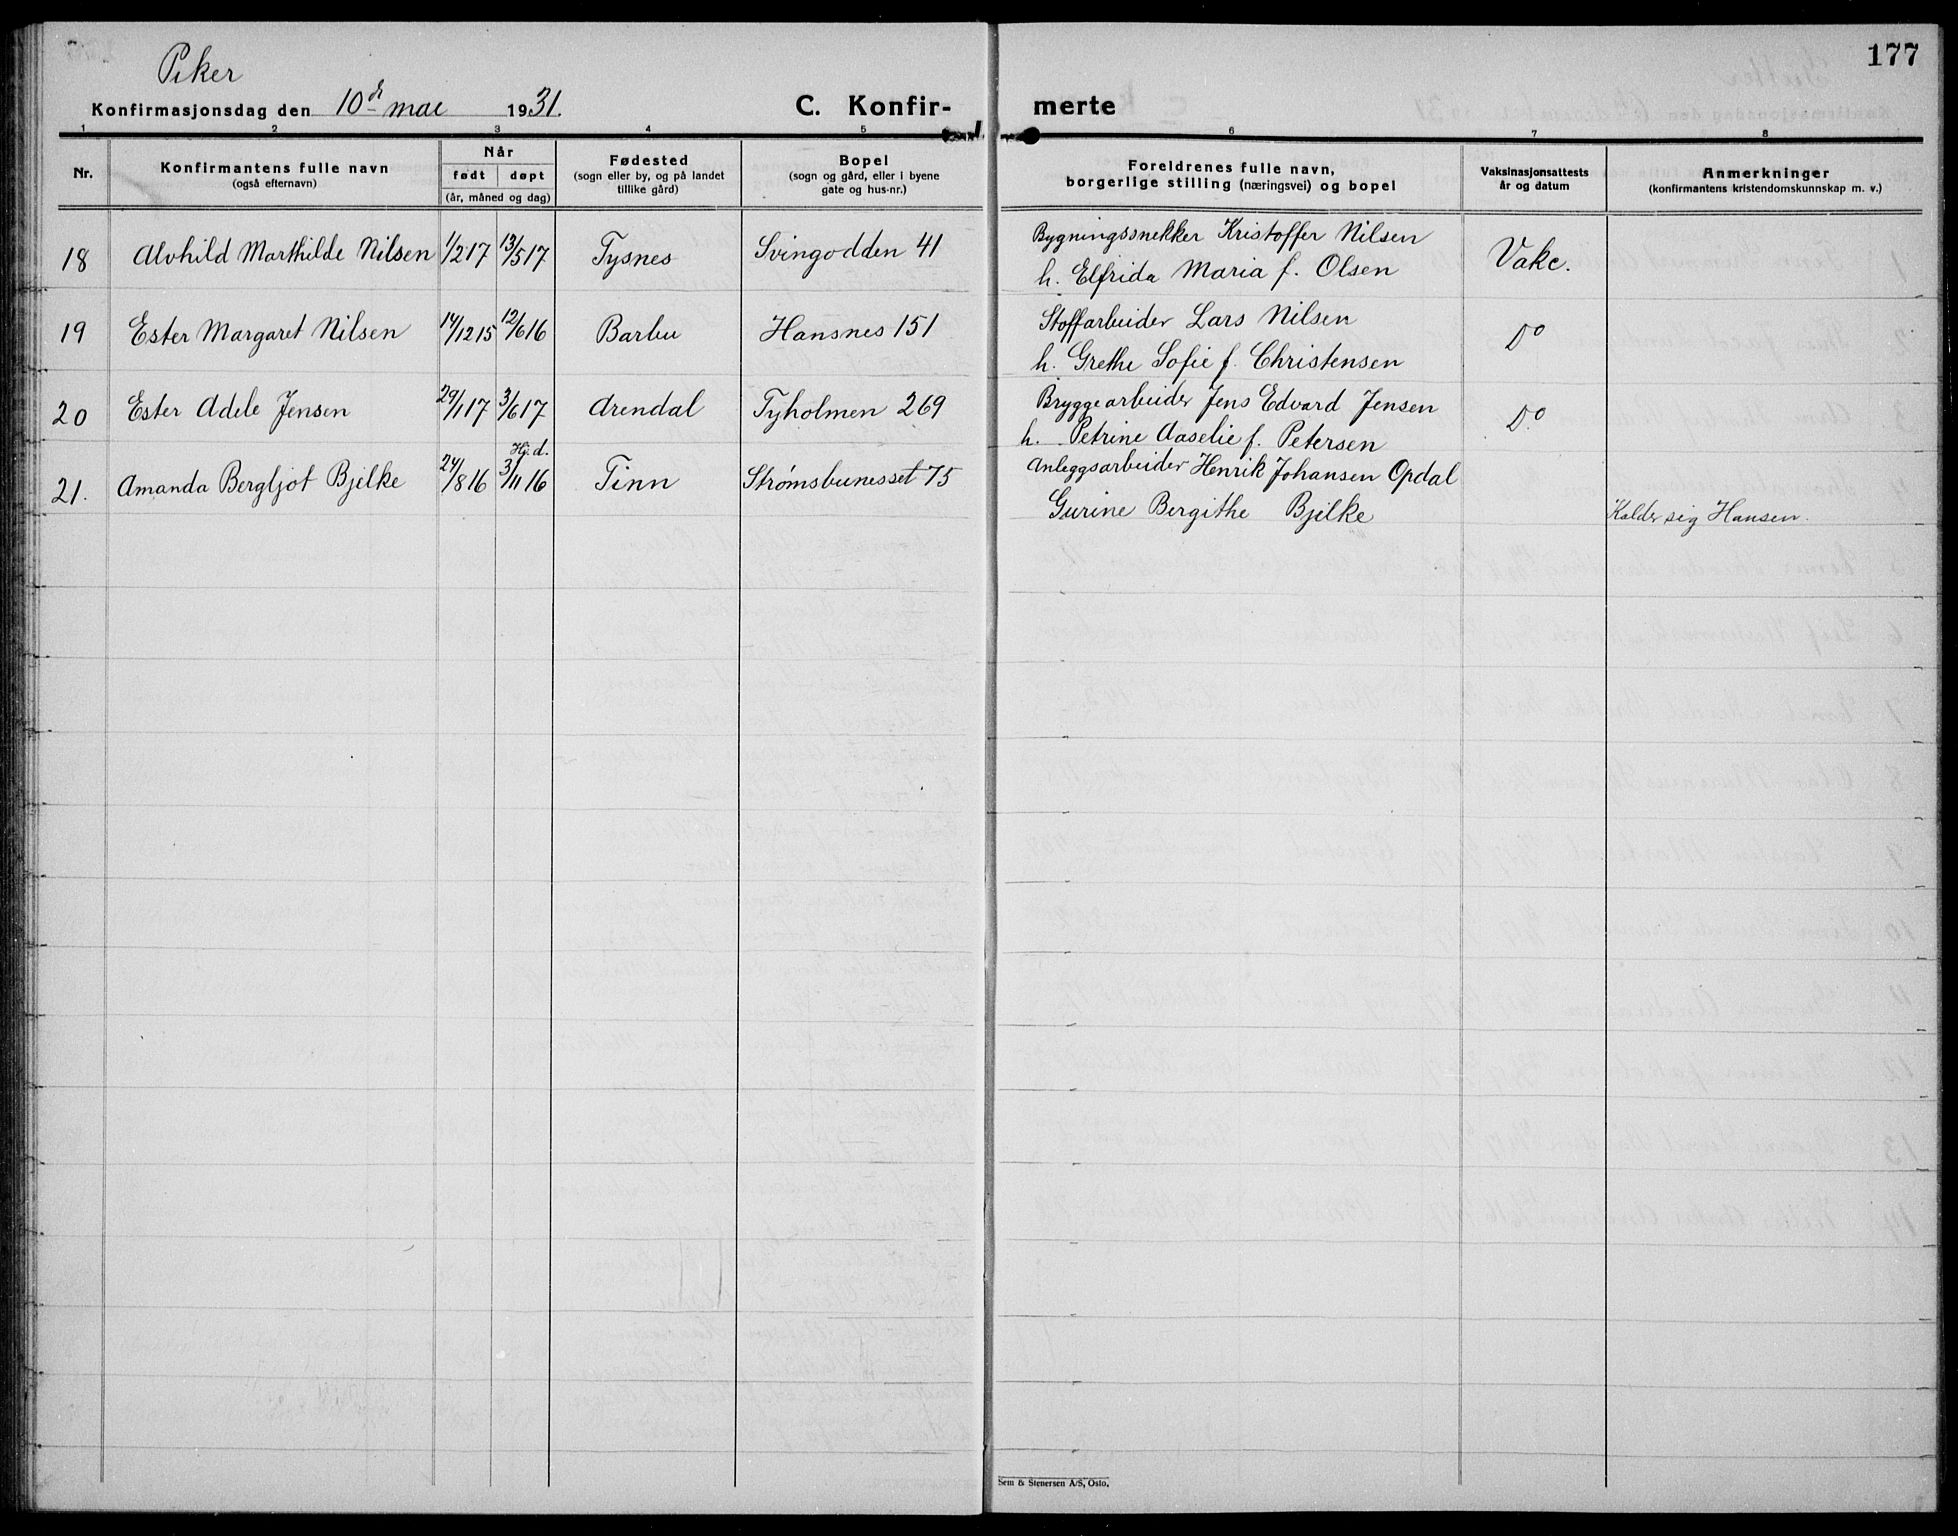 177
Piker
Konfirmasjonsdag den 10de mai 1931.
C. Konfir-merte
1 2 3 4 5 6 7 8
Nr.
Konfirmantens fulle navn
(også efternavn)
Når
født døpt
(år, måned og dag)
Fødested
(sogn eller by, og på landet
tillike gård)
Bopel
(sogn og gård, eller i byene
gate og hus-nr.)
Foreldrenes fulle navn,
borgerlige stilling (næringsvei) og bopel
Vaksinasjonsattests
år og datum
Anmerkninger
(konfirmantens kristendomskunnskap m. v.)
18 Alvhild Marthilde Nilsen 1/2 17 13/5 17 Tysnes Svingodden 41 Bygningssnekker Kristoffer Nilsen Vakc.
h. Elfrida Maria f. Olsen
19 Ester Margaret Nilsen 14/12 15 12/6 16 Barbu Hansnes 151 Stoffarbeider Lars Nilsen Do
h. Grethe Sofie f. Christensen
20 Ester Adele Jensen 29/1 17 3/6 17 Arendal Tyholmen 269 Bryggearbeider Jens Edvard Jensen Do.
h. Petrine Aaselie f. Petersen
Hj. d.
21. Amanda Bergljot Bjelke 24/8 16 3/11 16 Tinn Strømsbunesset 75 Anleggsarbeider Henrik Johansen Opdal
Gurine Bergithe Bjelke Kalder sig Hansen.
Sem & Stenersen A/S, Oslo.